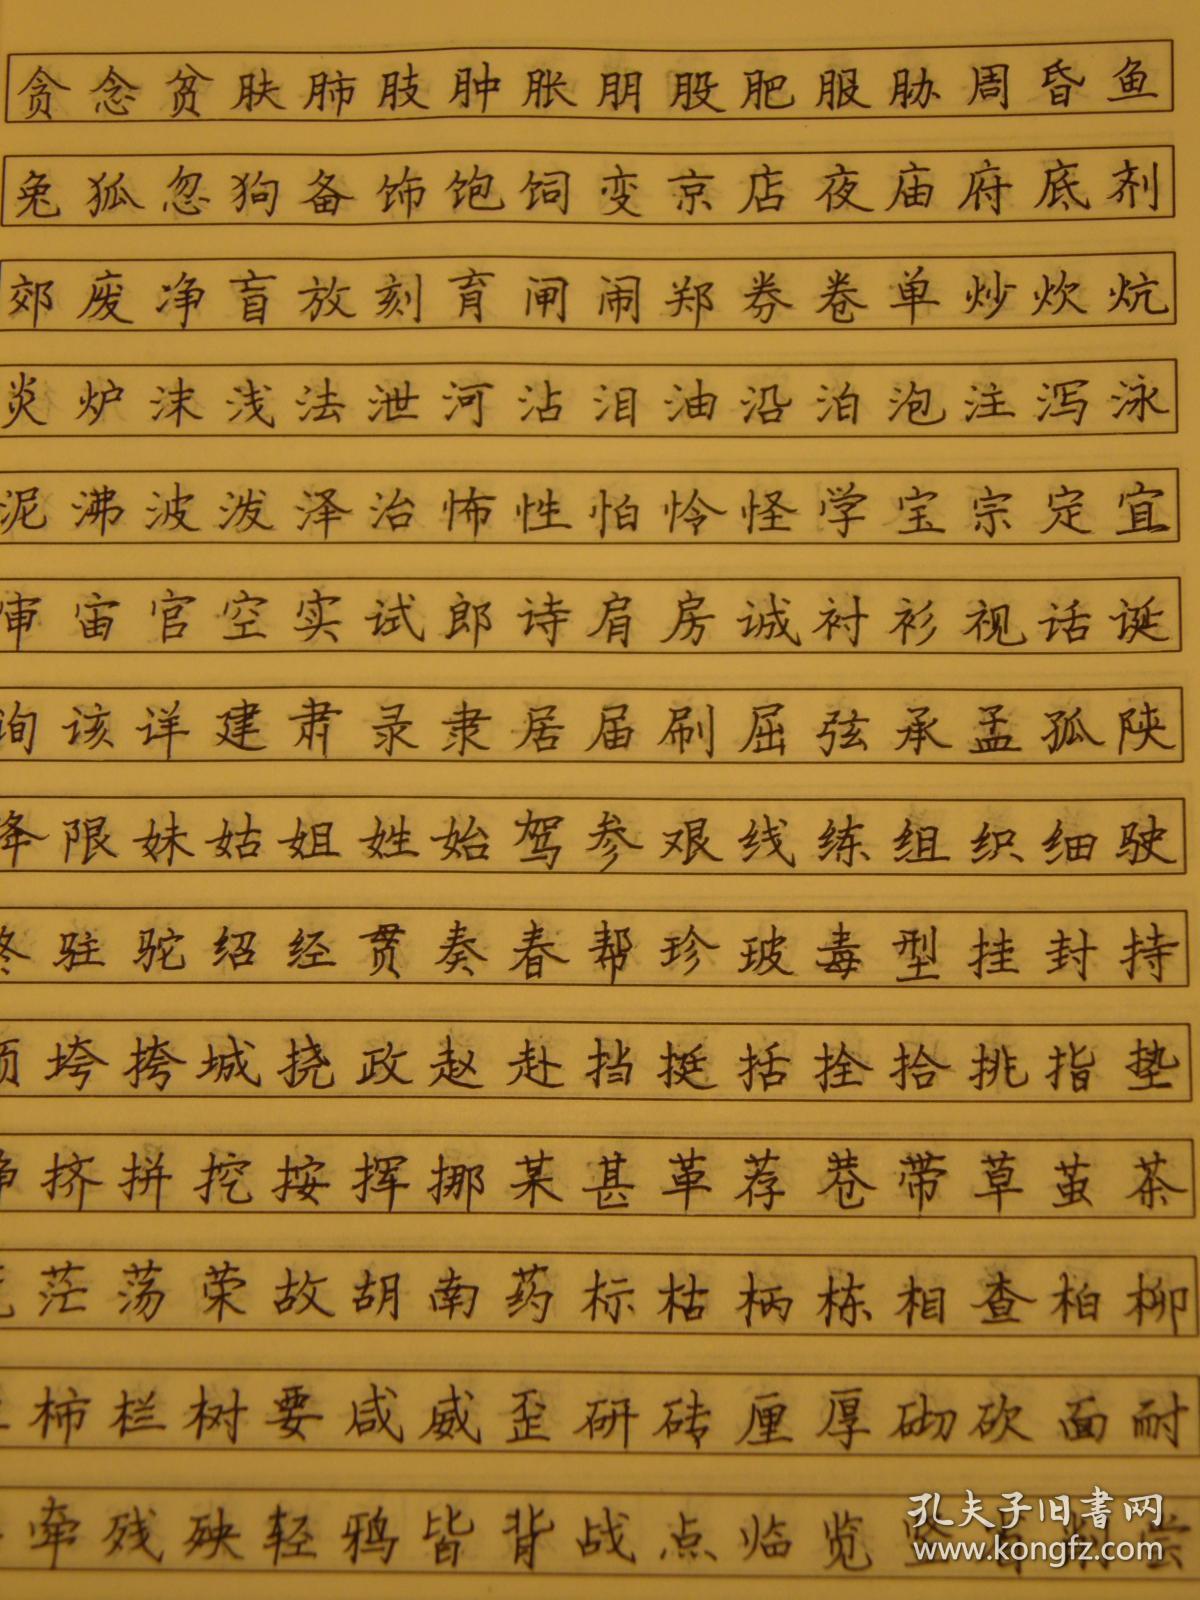 贪念贫肤肺肢肿胀朋股肥服胁周昏鱼
兔狐忽狗备饰饱饲变京店夜庙府底剂
郊废净盲放刻育闸闹郑券卷单炒炊炕
炎炉沫浅法泄河沾泪油沿泊泡注泻泳
泥沸波泼泽治怖性怕怜怪学宝宗定宜
审宙官空实试郎诗肩房诚衬衫视话诞
询该详建肃录隶居届刷屈弦承孟孤陕
降限妹姑姐姓始驾参艰线练组织细驶
终驻驼绍经贯奏春帮珍玻毒型挂封持
项垮挎城挠政赵赴挡挺括拴拾挑指垫
挣挤拼挖按挥挪某甚革荐巷带草茧茶
茫荡荣故胡南药标枯柄栋相查柏柳
柿栏树要咸威歪研砖厘厚砌砍面耐
牵残殃轻鸦皆背战点临览竖尝
孔夫子旧書网
www.kongfz.com